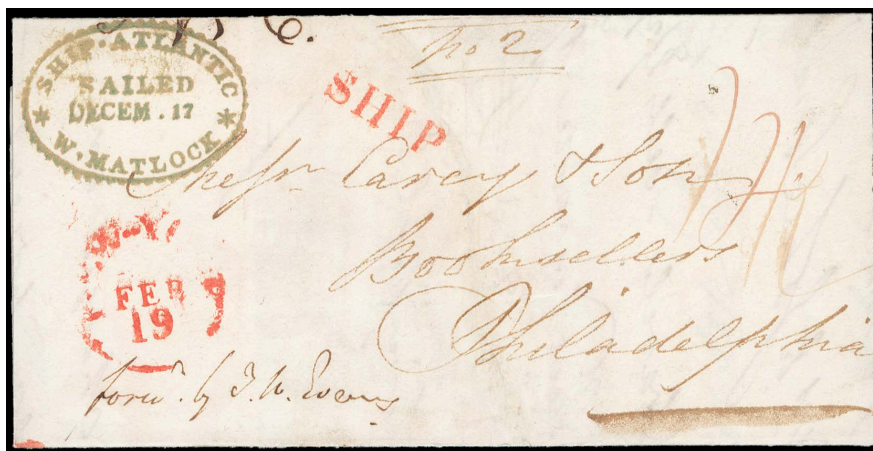 SHIP · ATLANTIC
SAILED
DECEM . 17
W. MATLOCK
No 2
SHIP
Messrs Carey & Son
Booksellers
Philadelphia
W-Y
FEB
19
forwd. by J. W. Evans